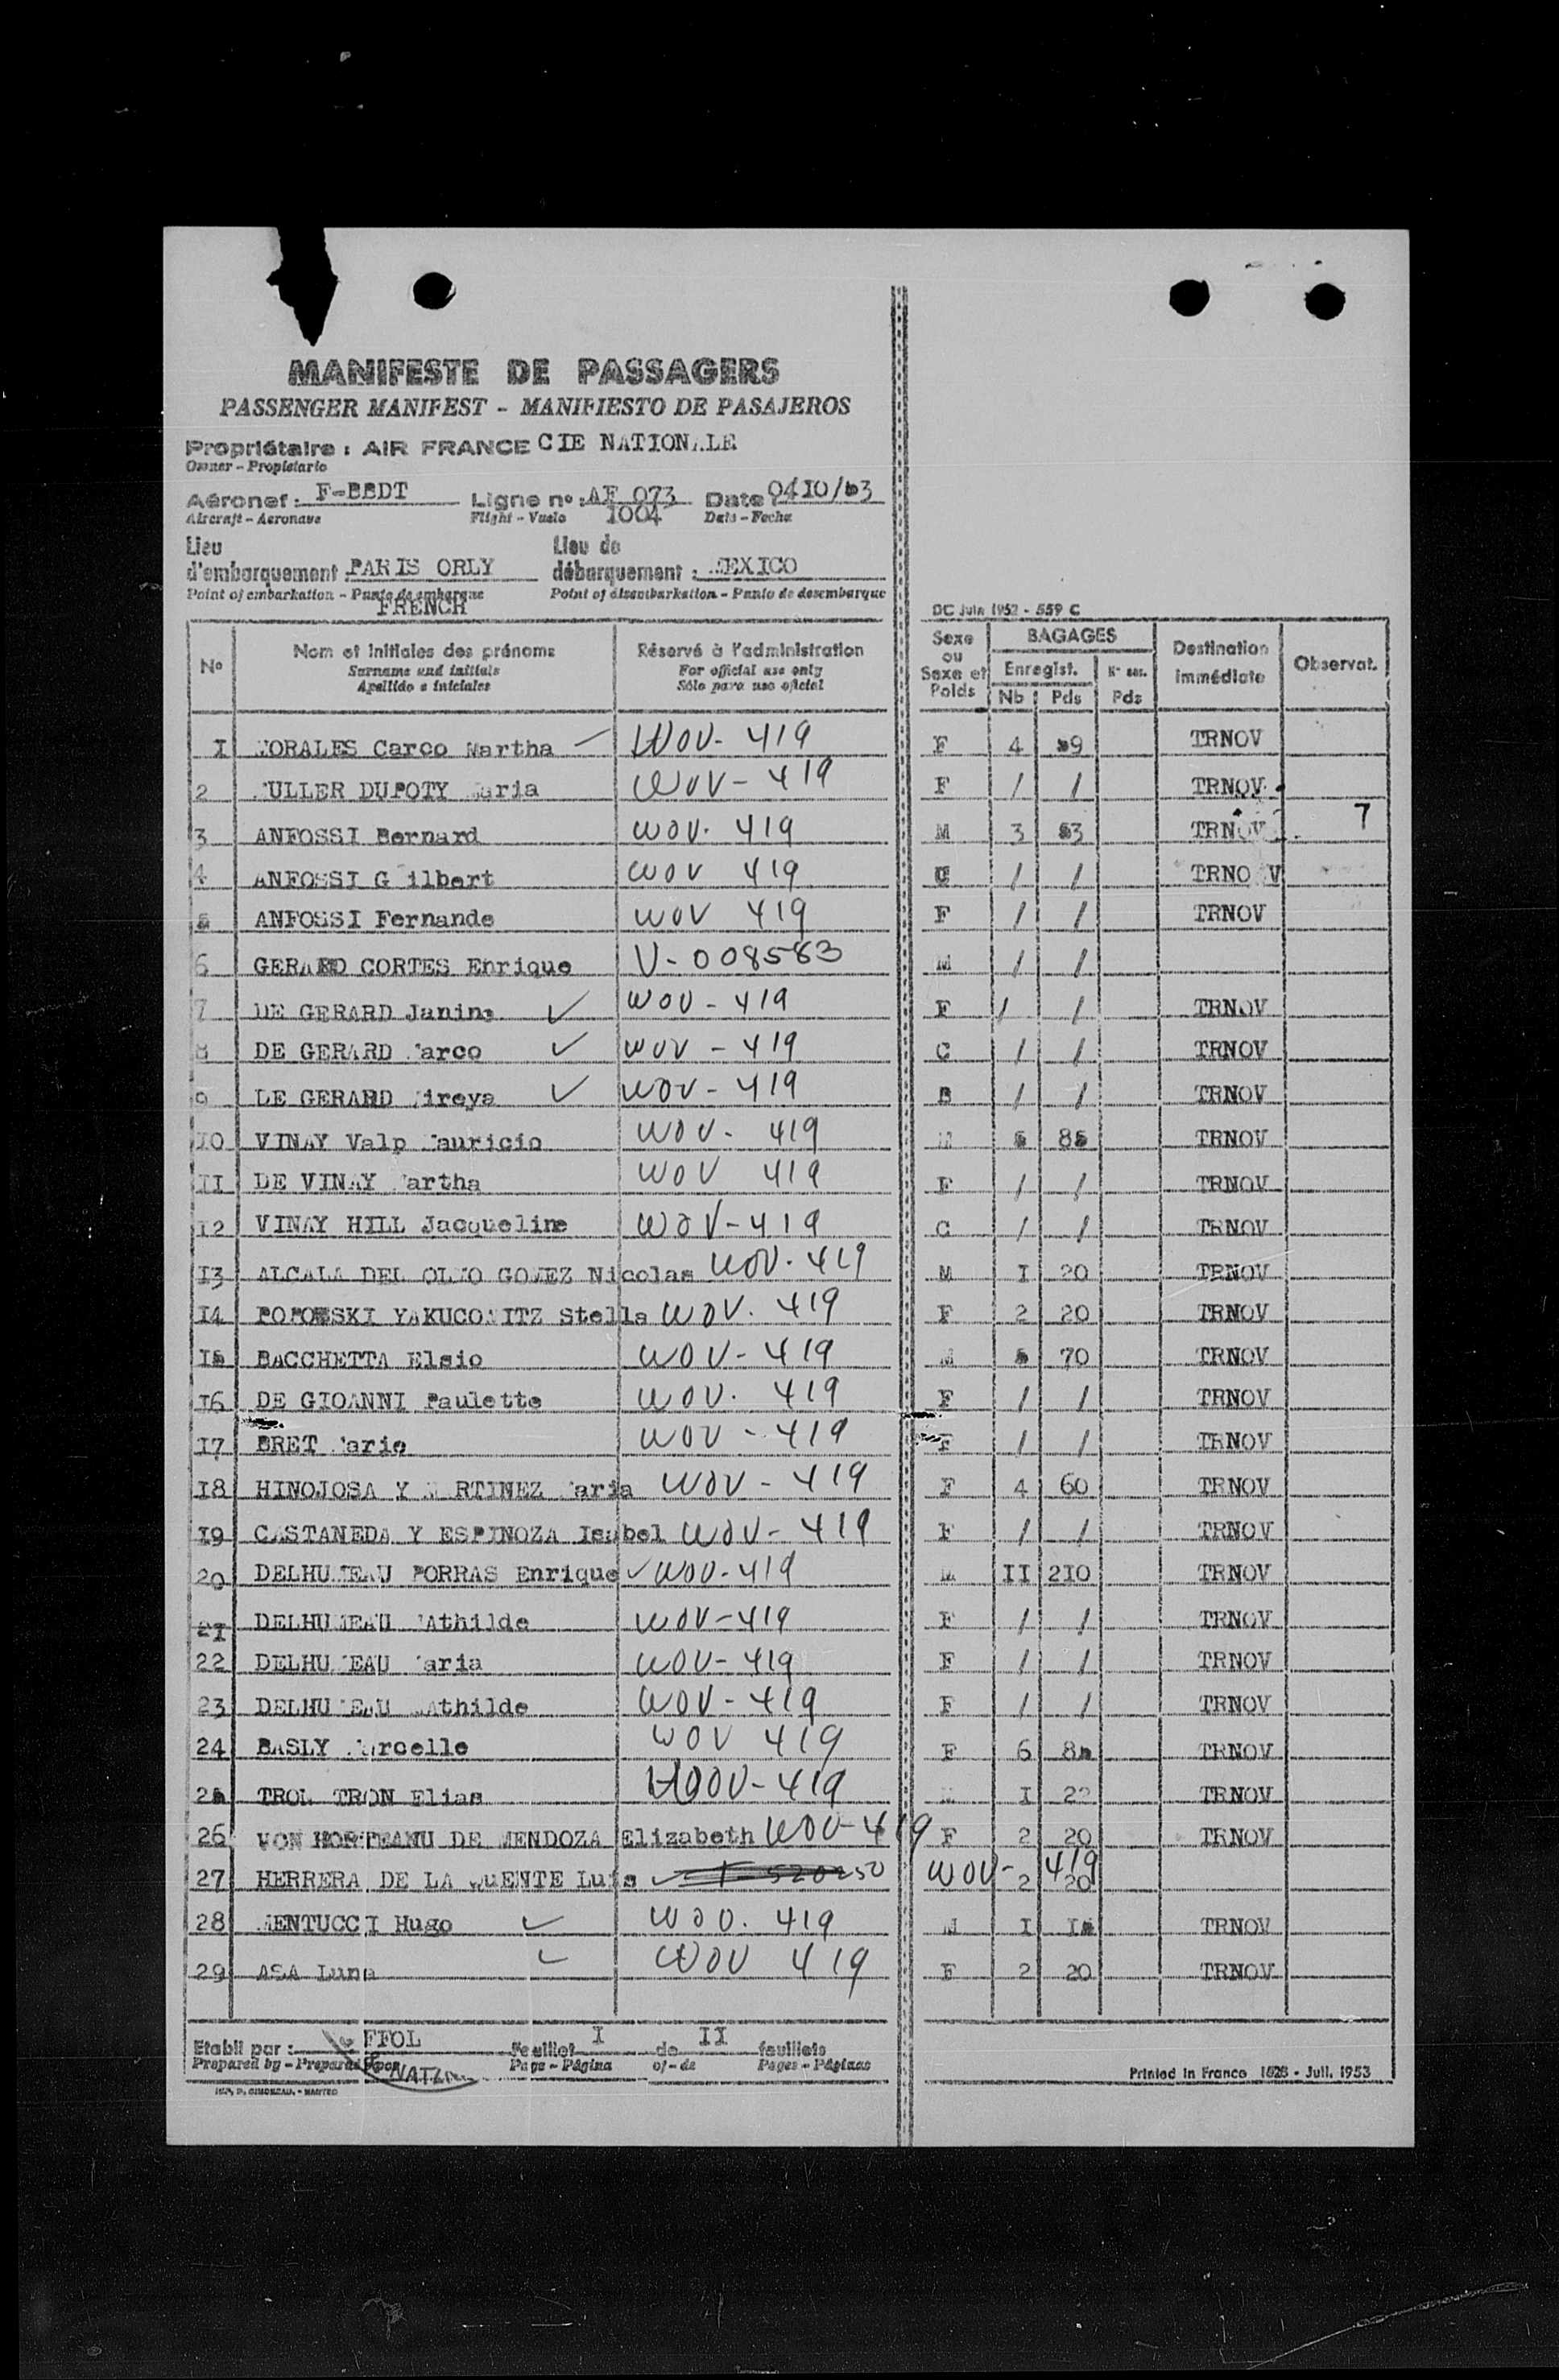 MANIFESTE DE PASSAGERS
PASSENGER MANIFEST - MANIFIESTO DE PASAJEROS
Propriétaire : AIR FRANCE CIE NATIONALE
Owner - Propietario
Aéronef : F-BBDT Ligne n° : AF 073 Date 0410/53
Aircraft - Aeronave Flight - Vuelo 1004 Date - Fecha
Lieu d'embarquement PARIS ORLY Lieu de débarquement : MEXICO
Point of embarkation - Punto de embarque Point of disembarkation - Punto de desembarque
FRENCH
DC Juin 1952 - 559 C
N° Nom et initiales des prénoms Réservé à l'administration Sexe ou Sexe et Poids BAGAGES Destination immédiate Observat.
Surname and initials For official use only Enregist.
Apellido e iniciales Sólo para uso oficial Nb Pds Pds
I MORALES Carco Martha WOV- 419 F 4 59 TRNOV
2 MULLER DUPOTY Maria WOV- 419 F / / TRNOV
3 ANFOSSI Bernard WOV- 419 M 3 53 TRNOV 7
4 ANFOSSI G ilbert WOV 419 / / TRNO V
5 ANFOSSI Fernande WOV 419 F / / TRNOV
6 GERARD CORTES Enrique V-008583 M / /
7 DE GERARD Janine ✓ WOV- 419 F / / TRNOV
8 DE GERARD Marco ✓ WOV - 419 C / / TRNOV
9 LE GERARD Mireya ✓ WOV- 419 B / / TRNOV
10 VINAY Valp Mauricio WOV- 419 M 5 85 TRNOV
II DE VINAY Martha WOV 419 F / / TRNOV
I2 VINAY HILL Jacqueline WOV-419 C / / TRNOV
I3 ALCALA DEL OLMO GOMEZ Nicolas WOV- 419 M I 20 TRNOV
I4 POPOWSKI YAKUCOWITZ Stella WOV. 419 F 2 20 TRNOV
I5 BACCHETTA Elsio WOV- 419 M 5 70 TRNOV
I6 DE GIOANNI Paulette WOV. 419 F / / TRNOV
I7 BRET Marie WOV - 419 F / / TRNOV
I8 HINOJOSA Y MARTINEZ Maria WOV - 419 F 4 60 TRNOV
I9 CASTANEDA Y ESPINOZA Isabel WOV- 419 F / / TRNOV
20 DELHUMEAU PORRAS Enrique ✓ WOV-419 M II 2I0 TRNOV
2I DELHUMEAU MAthilde WOV-419 F / / TRNOV
22 DELHUMEAU Maria WOV- 419 F / / TRNOV
23 DELHUMEAU MAthilde WOV- 419 F / / TRNOV
24 BASLY Marcelle WOV 419 F 6 85 TRNOV
25 TRON Elias WOV- 419 M I 22 TRNOV
26 VON DE MENDOZA Elizabeth WOV-419 F 2 20 TRNOV
27 HERRERA DE LA QUENTE Luis ✓ WOV- 419 2 20
28 MENTUCCI Hugo ✓ WOV. 419 M I I5 TRNOV
29 ASA Luna ✓ WOV 419 F 2 20 TRNOV
Etabli par : FFOL Feuillet I de II feuillets
Prepared by - Preparado por Page - Página of - de Pages - Páginas
Printed in France 1528 - Juil. 1953